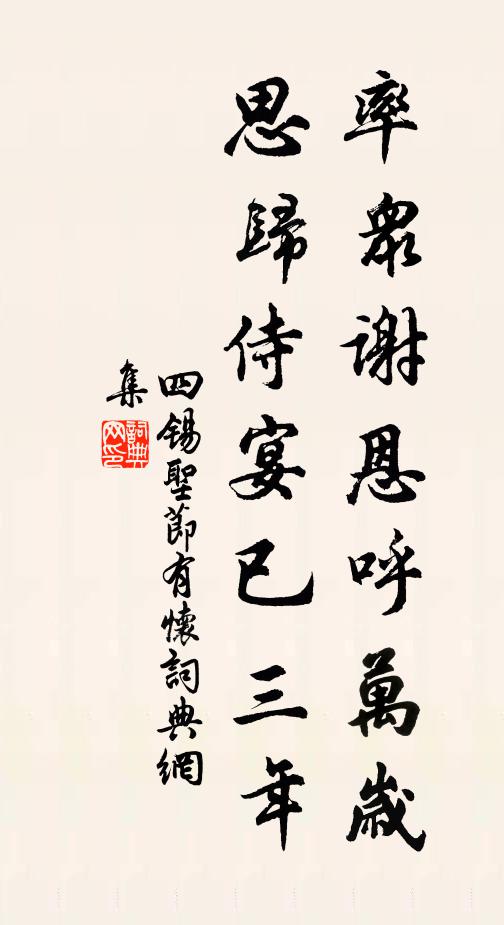 率衆謝恩呼萬歲
思歸侍宴已三年
四錫聖節有懷詞典網
集
詞典
网印